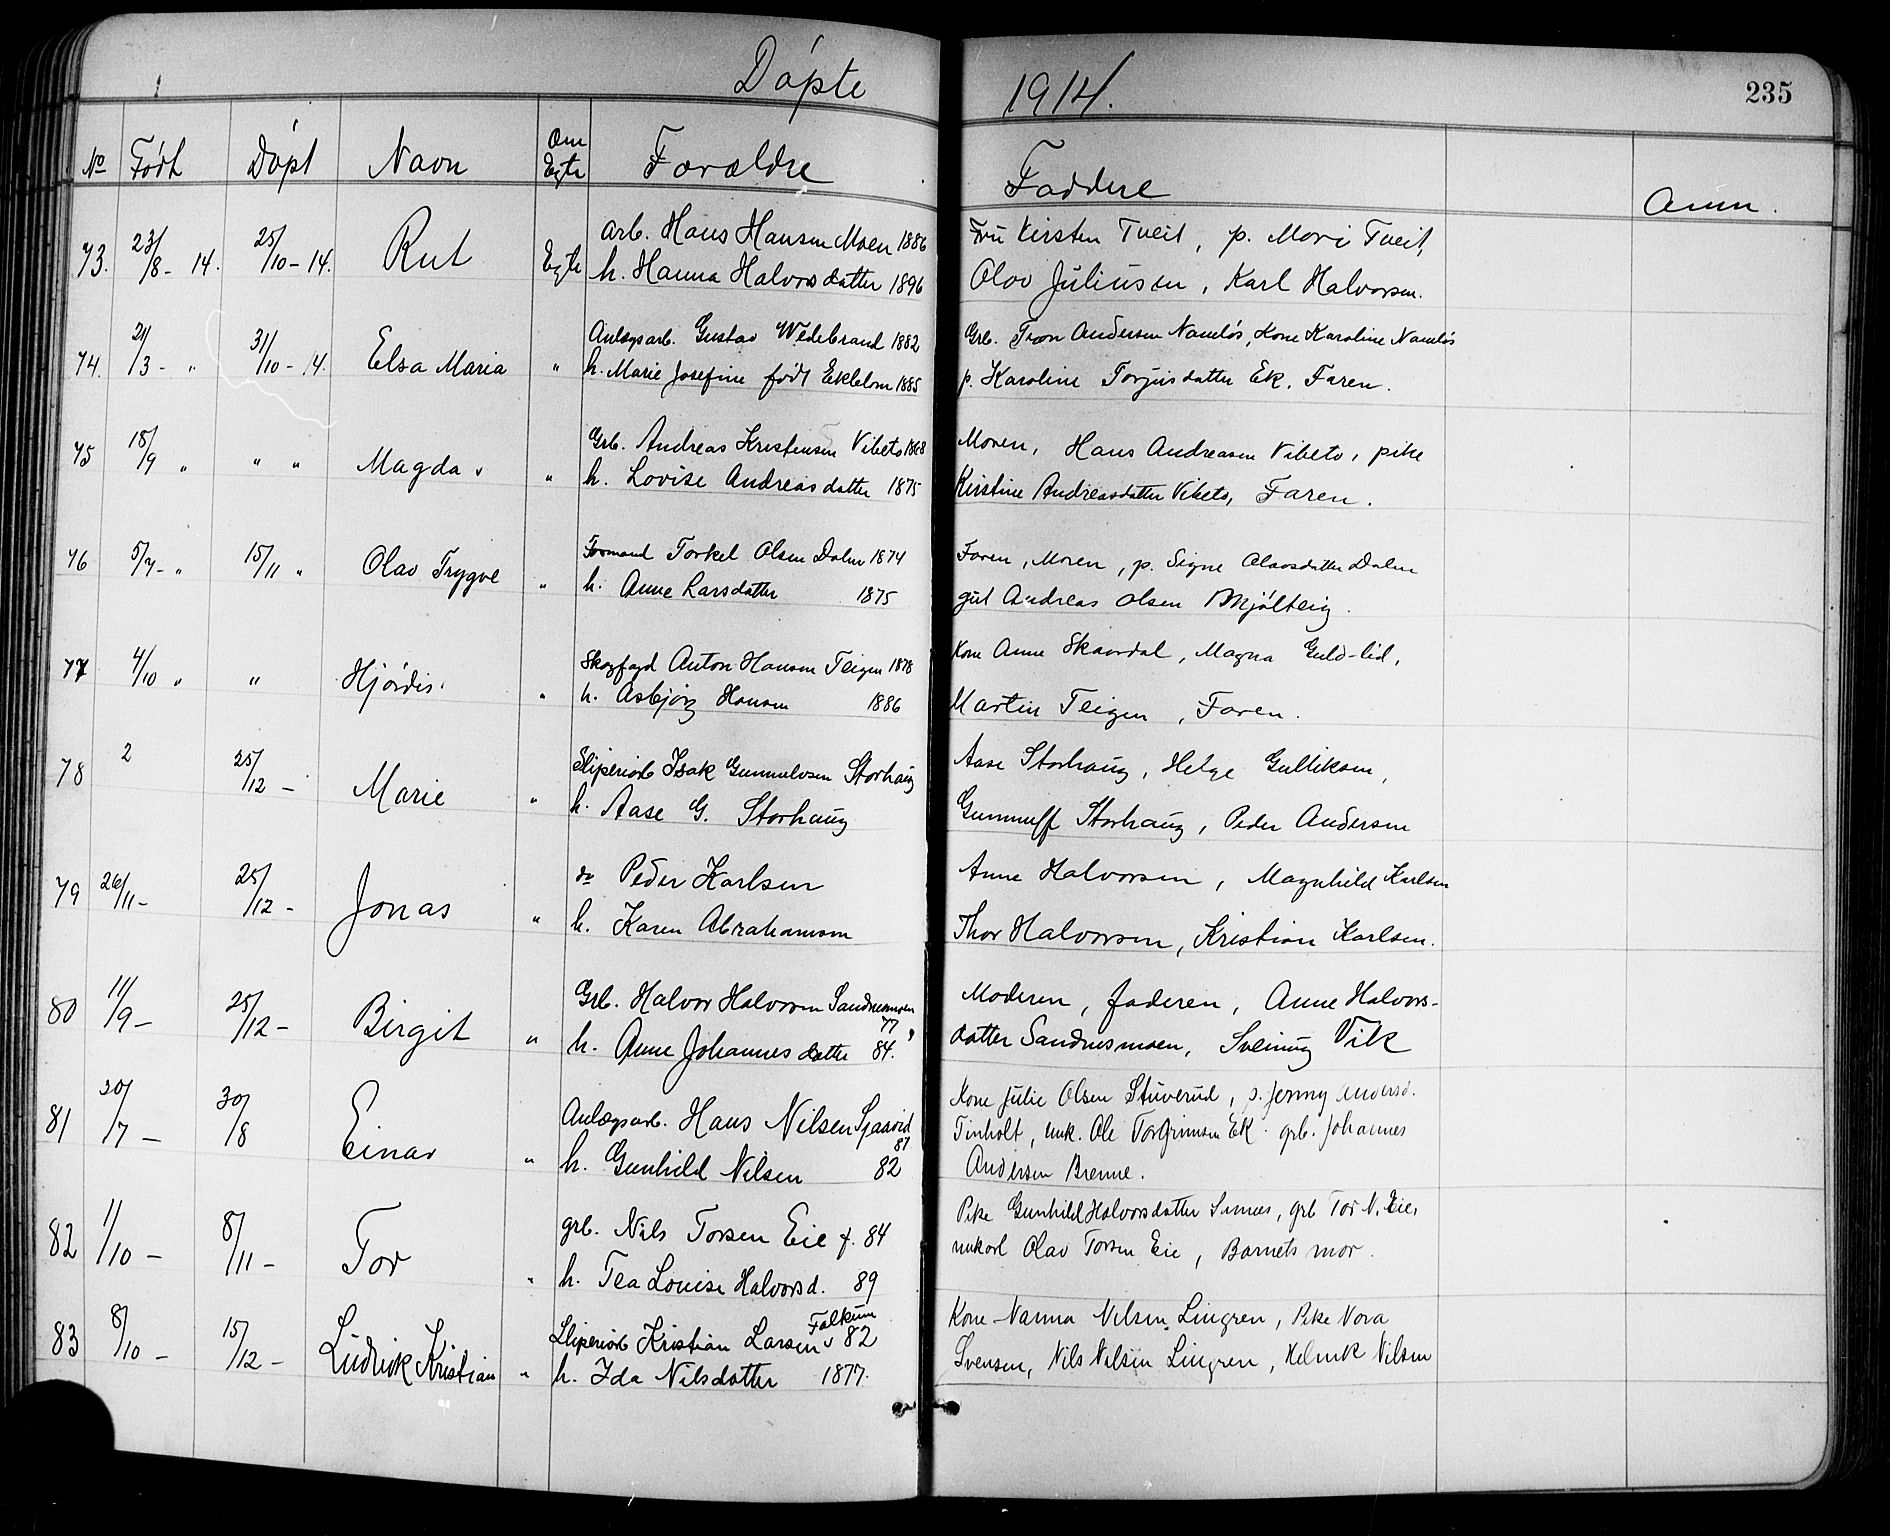 Döpte 1914. 235
No Födt Döpt Navn Om Egte Forældre Faddere Anm.
73. 23/8 - 14. 25/10 - 14. Rut Egte arb. Hans Hansen Moen 1886 Fru Kirsten Tveit, p. Mari Tveit,
h. Hanna Halvorsdatter 1896 Olav Juliussen, Karl Halvorsen.
74. 21/3 - " 31/10 - 14. Elsa Maria " Anlægsarb. Gustav Widebrand 1882 Grb. Tron Andersen Namløs, Kone Karoline Namløs
h. Marie Josefine født Ekblom 1885 p. Karoline Torjusdatter Ek. Faren.
75 18/9 " " " Magda " Grb. Andreas Kristensen Vibeto 1868 Moren, Hans Andreasen Vibeto, pike
h. Lovise Andreasdatter 1875 Kirstine Andreasdatter Vibeto, Faren.
76 5/7 - " 15/11 " Olav Trygve " Formand Torkel Olsen Dalen 1874 Faren, Moren, p. Signe Olavsdatter Dalen
h. Anne Larsdatter 1875 gut Andreas Olsen Mjølteig.
77 4/10 " " Hjørdis. " Skogfogd Anton Hansen Teigen 1878 Kone Anne Skaardal, Magna Guld-lid,
h. Asbjørg Hansen 1886 Martin Teigen, Faren.
78 2 25/12 - Marie " Sliperiarb Isak Gunnulvsen Storhaug Aase Storhaug, Helge Gulliksen,
h. Aase G. Storhaug Gunnulf Storhaug, Peder Andersen
79 26/11 - 25/12 - Jonas " do Peder Karlsen Anne Halvorsen, Magnhild Karlsen
h. Karen Abrahamsen Thor Halvorsen, Kristian Karlsen.
80 11/9 - 25/12 - Birgit " Grb. Halvor Halvorsen Sandnesmoen 77, Moderen, faderen, Anne Halvors-
h. Anne Johannesdatter 84. datter Sandnesmoen, Sveinung Vik
81 20/7 - 30/8 Einar " Anlægsarb. Hans Nilsen 87 Kone Julie Olsen Stuverud, p. Jenny Andersd.
Tinholt, unk. Ole Torgrimsen Ek. grb. Johannes
h. Gunhild Nilsen 82 Andersen Brenne.
82 11/10 - 8/11 - Tor " grb. Nils Torsen Eie f. 84 Pike Gunhild Halvorsdatter, grb Tor N. Eie,
unkarl Olav Torsen Eie, Barnets mor.
h. Tea Louise Halvorsd. 89
83 8/10 - 15/12 - Ludvik Kristian " Sliperiarb Kristian Larsen Falkum 82 Kone Nanna Nilsen Lingren, Pike Nora
h. Ida Nilsdatter 1877. Svensen, Nils Nilsen Lingren, Helmik Nilsen